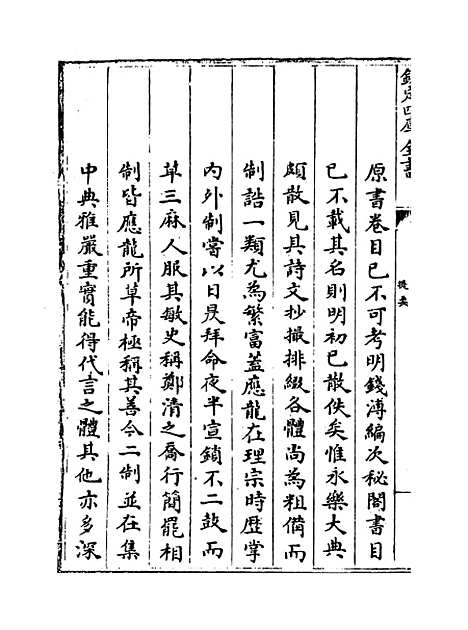 欽定四庫全書
提要
原書卷目已不可考明錢溥編次秘閣書目
已不載其名則明初已散佚矣惟永樂大典
頗散見其詩文抄撮排綴各體尚為粗備而
制誥一類尤為繁富蓋應龍在理宗時歴掌
内外制嘗以日昃拜命夜半宣鎖不二鼓而
草三麻人服其敏史稱鄭清之喬行簡罷相
制皆應龍所草帝極稱其善今二制並在集
中典雅嚴重實能得代言之體其他亦多深